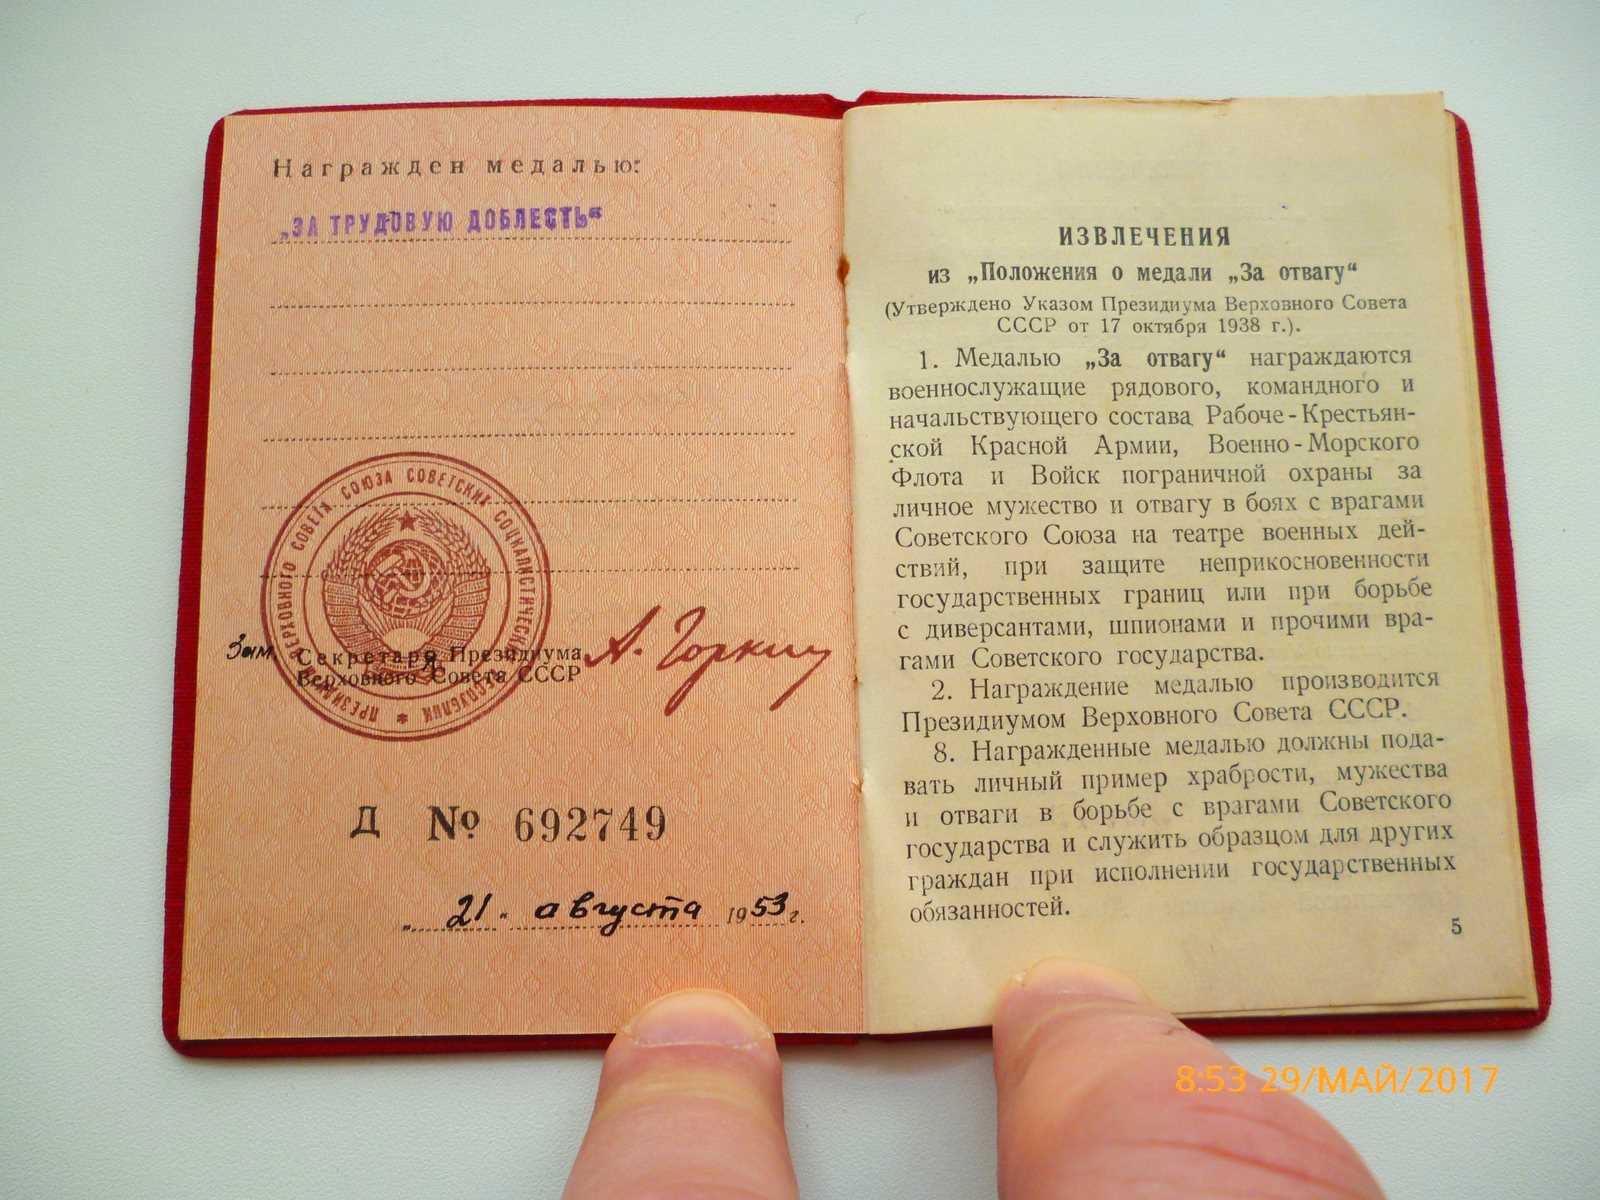 Награжден медалью:
„ЗА ТРУДОВУЮ ДОБЛЕСТЬ“
ПРЕЗИДИУМ ВЕРХОВНОГО СОВЕТА СОЮЗА СОВЕТСКИХ СОЦИАЛИСТИЧЕСКИХ РЕСПУБЛИК *
Зам. Секретаря Президиума
Верховного Совета СССР
А. Горкин
Д № 692749
„21“ августа 1953 г.
ИЗВЛЕЧЕНИЯ
из „Положения о медали „За отвагу“
(Утверждено Указом Президиума Верховного Совета
СССР от 17 октября 1938 г.).
1. Медалью „За отвагу“ награждаются
военнослужащие рядового, командного и
начальствующего состава Рабоче-Крестьян-
ской Красной Армии, Военно-Морского
Флота и Войск пограничной охраны за
личное мужество и отвагу в боях с врагами
Советского Союза на театре военных дей-
ствий, при защите неприкосновенности
государственных границ или при борьбе
с диверсантами, шпионами и прочими вра-
гами Советского государства.
2. Награждение медалью производится
Президиумом Верховного Совета СССР.
8. Награжденные медалью должны пода-
вать личный пример храбрости, мужества
и отваги в борьбе с врагами Советского
государства и служить образцом для других
граждан при исполнении государственных
обязанностей.
5
8:53 29/МАЙ/2017